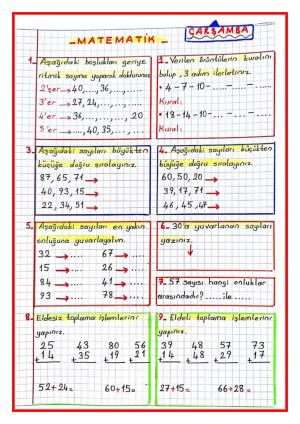 MATEMATİK
ÇARŞAMBA
1- Aşağıdaki boşlukları geriye
ritmik sayma yaparak doldurunuz.
2'şer → 40,....,36,....,....
3'er → 27,24,....,....,....
4'er → ....,36,....,....,20
5'er → ....,40,35,....,....
2- Verilen örüntülerin kuralını
bulup, 3 adım ilerletiniz.
• 4-7-10-....-....-....
Kural:
• 18-14-10-....-....-....
Kural:
3. Aşağıdaki sayıları büyükten
küçüğe doğru sıralayınız.
87, 65, 71 →
40, 93, 15 →
22, 34, 51 →
4. Aşağıdaki sayıları küçükten
büyüğe doğru sıralayınız.
60, 50, 20 →
39, 17, 71 →
46, 45, 47 →
5. Aşağıdaki sayıları en yakın
onluğuna yuvarlayalım.
32 → .... 67 → ....
15 → .... 26 → ....
84 → .... 41 → ....
93 → .... 78 → ....
6- 30'a yuvarlanan sayıları
yazınız.
7- 57 sayısı hangi onluklar
arasındadır? .....ile .....
8- Eldesiz toplama işlemlerini
yapınız.
25 43 80 56
+14 +35 +19 +21
52+24= 60+15=
9- Eldeli toplama işlemlerini
yapınız.
39 48 57 73
+14 +48 +29 +17
27+15= 66+28=